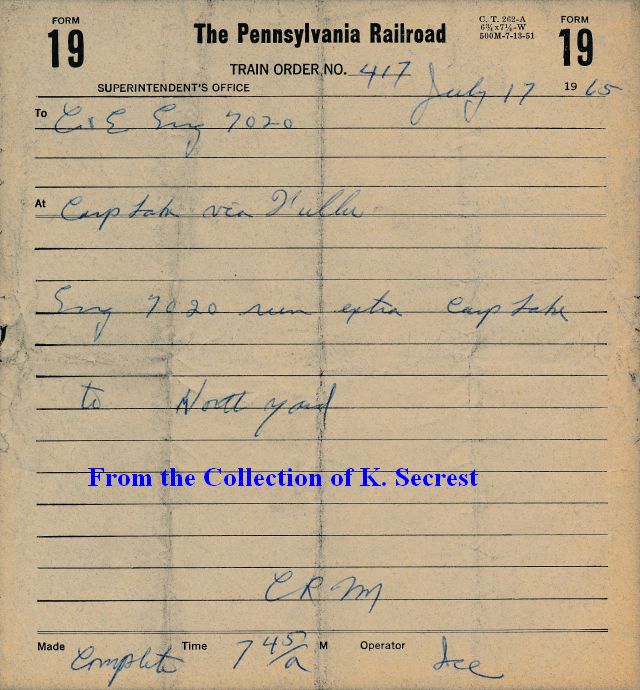 FORM 19
The Pennsylvania Railroad
C. T. 262-A
6¾x7½-W
500M-7-13-51
FORM 19
TRAIN ORDER NO. 417 July 17 1965
SUPERINTENDENT'S OFFICE
To C&E Eng 7020
At Carp Lake via
Eng 7020 run extra Carp Lake
to North yard
From the Collection of K. Secrest
CRM
Made Complete Time 7 45/a M Operator